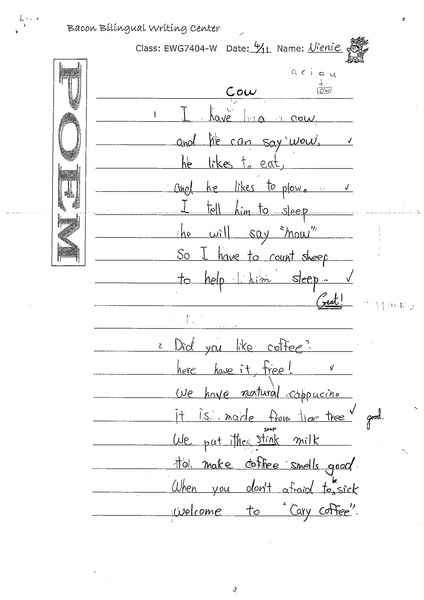 Bacon Bilingual Writing Center
Class: EWG7404-W Date: 4/11 Name: Nienie
POEM
a e i o u
ow
Cow
1 I have a cow,
and he can say "wow,
he likes to eat,
and he likes to plow.
I tell him to sleep
he will say "now"
So I have to count sheep
to help him sleep.
Great!
2 Did you like coffee?
here have it, free!
We have natural cappucino
it is made from tree good.
soup
We put stink milk
make coffee smells good
be
When you don't afraid to sick
welcome to "Cary coffee".